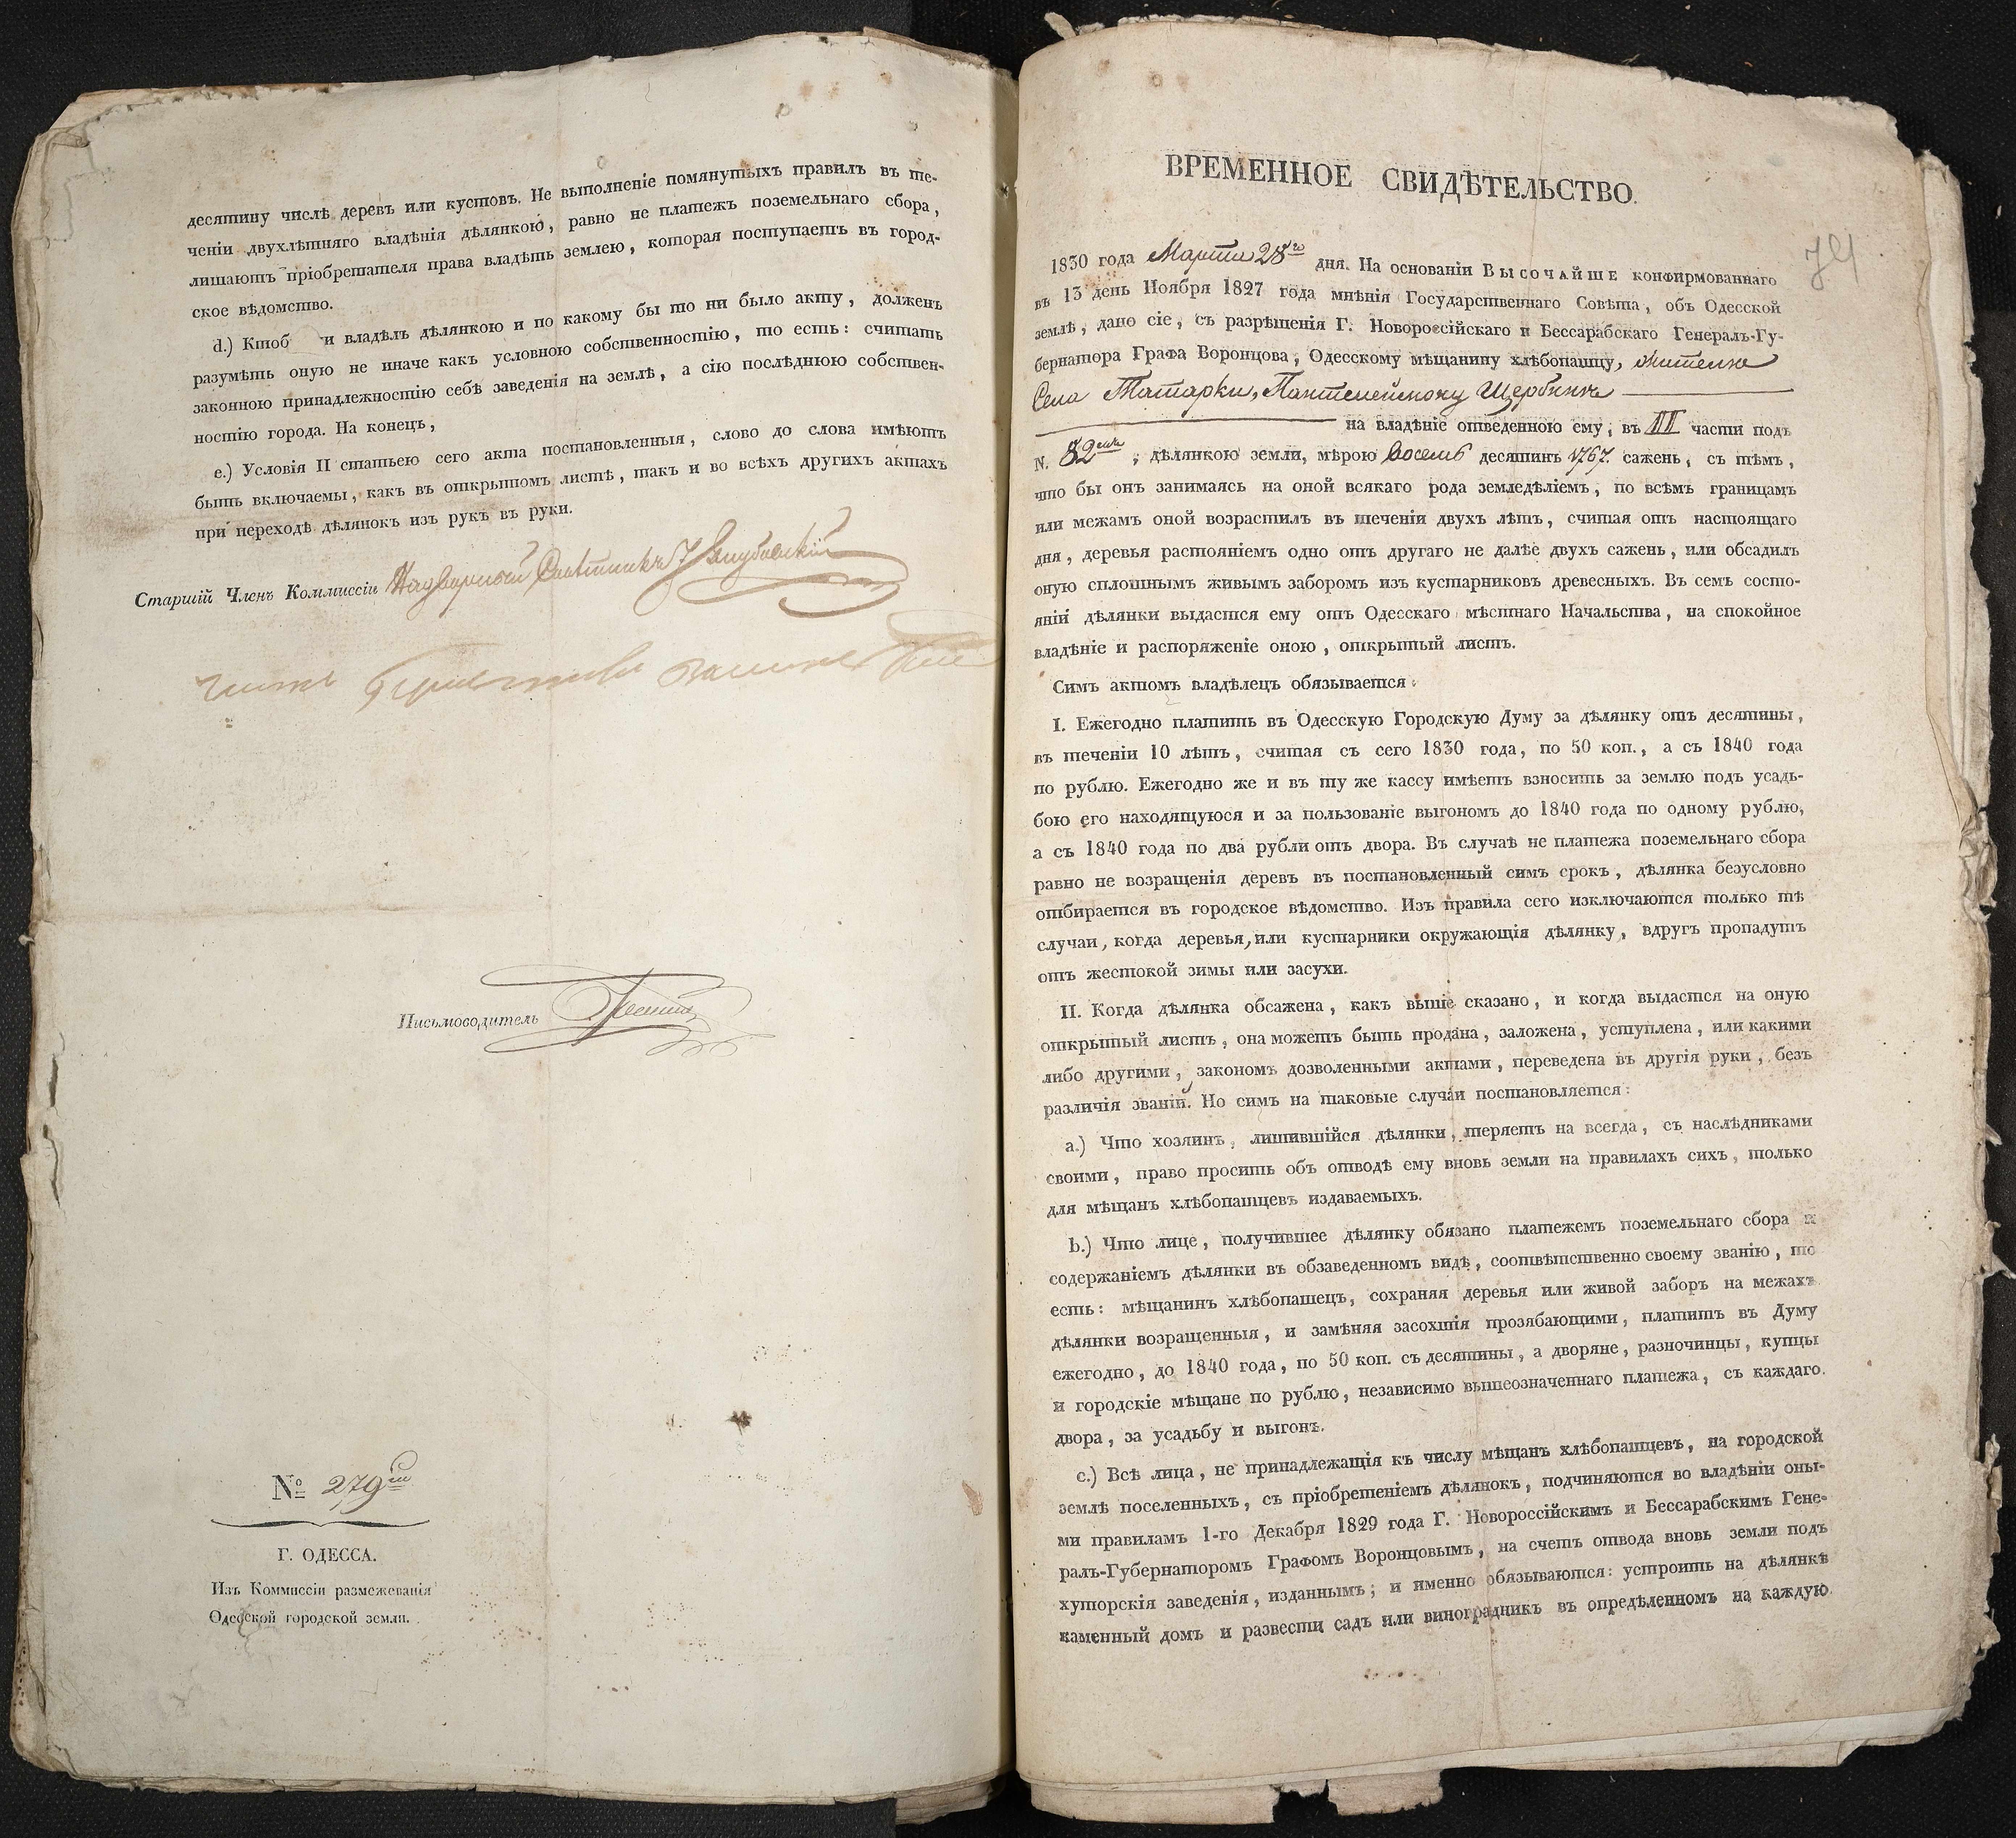 десятину числѣ деревъ или кустовъ. Не выполненіе помянутыхъ правилъ въ те-
ченіи двухлѣтняго владѣнія дѣлянкою, равно не платежъ поземельнаго сбора,
лишаютъ пріобретателя права владѣть землею, которая поступаетъ въ город-
ское вѣдомство.
d.) Ктоб и владѣлъ дѣлянкою и по какому бы то ни было акту, долженъ
разумѣть оную не иначе какъ условною собственностію, то есть: считать
законною принадлежностію себѣ заведенія на землѣ, а сію послѣднюю собствен-
ностію города. На конецъ,
e.) Условія II статьею сего акта постановленныя, слово до слова имѣютъ
быть включаемы, какъ въ открытомъ листѣ, такъ и во всѣхъ другихъ актахъ
при переходѣ дѣлянокъ изъ рукъ въ руки.
Старшій Членъ Коммиссіи Надворный Совѣтникъ
Письмоводитель
№ 279
Г. ОДЕССА.
Изъ Коммиссіи размежеванія
Одесской городской земли.
ВРЕМЕННОЕ СВИДѢТЕЛЬСТВО.
74
1830 года Марта 28го дня. На основаніи Высочайше конфирмованнаго
въ 13 день Ноября 1827 года мнѣнія Государственнаго Совѣта, объ Одесской
землѣ, дано сіе, съ разрѣшенія Г. Новороссійскаго и Бессарабскаго Генералъ-Гу-
бернатора Графа Воронцова, Одесскому мѣщанину хлѣбопашцу, жителю
Села Татарки, Пантелеймону Щербинѣ
на владѣніе отведенною ему, въ III части подъ
N. 82 , дѣлянкою земли, мѣрою восемь десятинъ 1767. сажень, съ тѣмъ,
что бы онъ занимаясь на оной всякаго рода земледѣліемъ, по всѣмъ границамъ
или межамъ оной возрастилъ въ теченіи двухъ лѣтъ, считая отъ настоящаго
дня, деревья растояніемъ одно отъ другаго не далѣе двухъ сажень, или обсадилъ
оную сплошнымъ живымъ заборомъ изъ кустарниковъ древесныхъ. Въ семъ состо-
яніи дѣлянки выдастся ему отъ Одесскаго мѣстнаго Начальства, на спокойное
владѣніе и распоряженіе оною, открытый листъ.
Симъ актомъ владѣлецъ обязывается:
I. Ежегодно платить въ Одесскую Городскую Думу за дѣлянку отъ десятины,
въ теченіи 10 лѣтъ, считая съ сего 1830 года, по 50 коп., а съ 1840 года
по рублю. Ежегодно же и въ ту же кассу имѣетъ взносить за землю подъ усадь-
бою его находящуюся и за пользованіе выгономъ до 1840 года по одному рублю,
а съ 1840 года по два рубли отъ двора. Въ случаѣ не платежа поземельнаго сбора
равно не возращенія деревъ въ постановленный симъ срокъ, дѣлянка безусловно
отбирается въ городское вѣдомство. Изъ правила сего изключаются только тѣ
случаи, когда деревья, или кустарники окружающія дѣлянку, вдругъ пропадутъ
отъ жестокой зимы или засухи.
II. Когда дѣлянка обсажена, какъ выше сказано, и когда выдастся на оную
открытый листъ, она можетъ быть продана, заложена, уступлена, или какими
либо другими, закономъ дозволенными актами, переведена въ другія руки, безъ
различія званій. Но симъ на таковые случаи постановляется:
a.) Что хозяинъ, лишившійся дѣлянки, теряетъ на всегда, съ наслѣдниками
своими, право просить объ отводѣ ему вновь земли на правилахъ сихъ, только
для мѣщанъ хлѣбопашцевъ издаваемыхъ.
b.) Что лице, получившее дѣлянку обязано платежемъ поземельнаго сбора и
содержаніемъ дѣлянки въ обзаведенномъ видѣ, соотвѣтственно своему званію, то
есть: мѣщанинъ хлѣбопашецъ, сохраняя деревья или живой заборъ на межахъ
дѣлянки возращенныя, и замѣняя засохшія прозябающими, платитъ въ Думу
ежегодно, до 1840 года, по 50 коп. съ десятины, а дворяне, разночинцы, купцы
и городскіе мѣщане по рублю, независимо вышеозначеннаго платежа, съ каждаго
двора, за усадьбу и выгонъ.
c.) Всѣ лица, не принадлежащія къ числу мѣщанъ хлѣбопашцевъ, на городской
землѣ поселенныхъ, съ пріобретеніемъ дѣлянокъ, подчиняются во владѣніи оны-
ми правиламъ 1-го Декабря 1829 года Г. Новороссійскимъ и Бессарабскимъ Гене-
ралъ-Губернаторомъ Графомъ Воронцовымъ, на счетъ отвода вновь земли подъ
хуторскія заведенія, изданнымъ; и именно обязываются: устроить на дѣлянкѣ
каменный домъ и развести садъ или виноградникъ въ опредѣленномъ на каждую